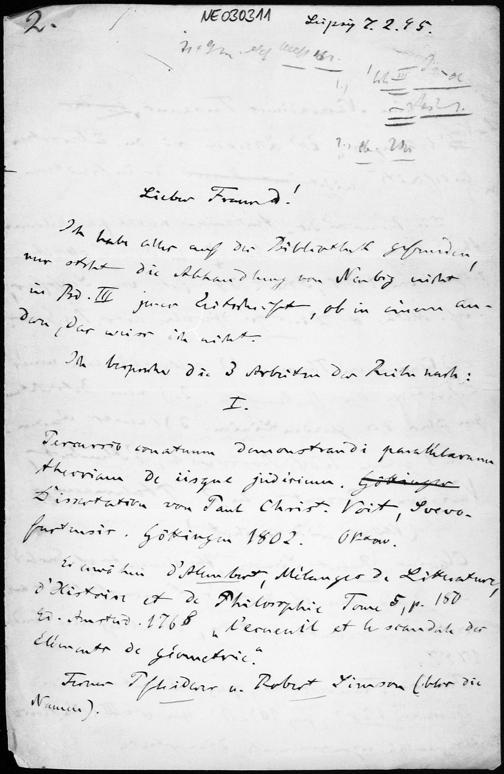 2.
NE030311
Leipzig 7.2.95.
Lieber Freund!
Ich habe alles auf der Bibliothek gefunden,
nur steht die Abhandlung von Narbig nicht
in Bd. III jener Zeitschrift, ob in einem an-
dern, das weiss ich nicht.
Ich bespreche die 3 Arbeiten der Reihe nach:
I.
Percursio conatuum demonstrandi parallelarum
theoriam de iisque judicium. Göttingen
Dissertation von Paul Christ. Voit, Suevo-
furtensis. Göttingen 1802. Oktav.
Es erwähnt d'Alembert, Mélanges de Litterature,
d'Histoire et de Philosophie Tome 5, p. 180
Ed. Amstd. 1768 "l'ecueuil et le scandale des
Elémente de géometrie."
Ferner Pfleiderer u. Robert Simson (blos die
Namen).